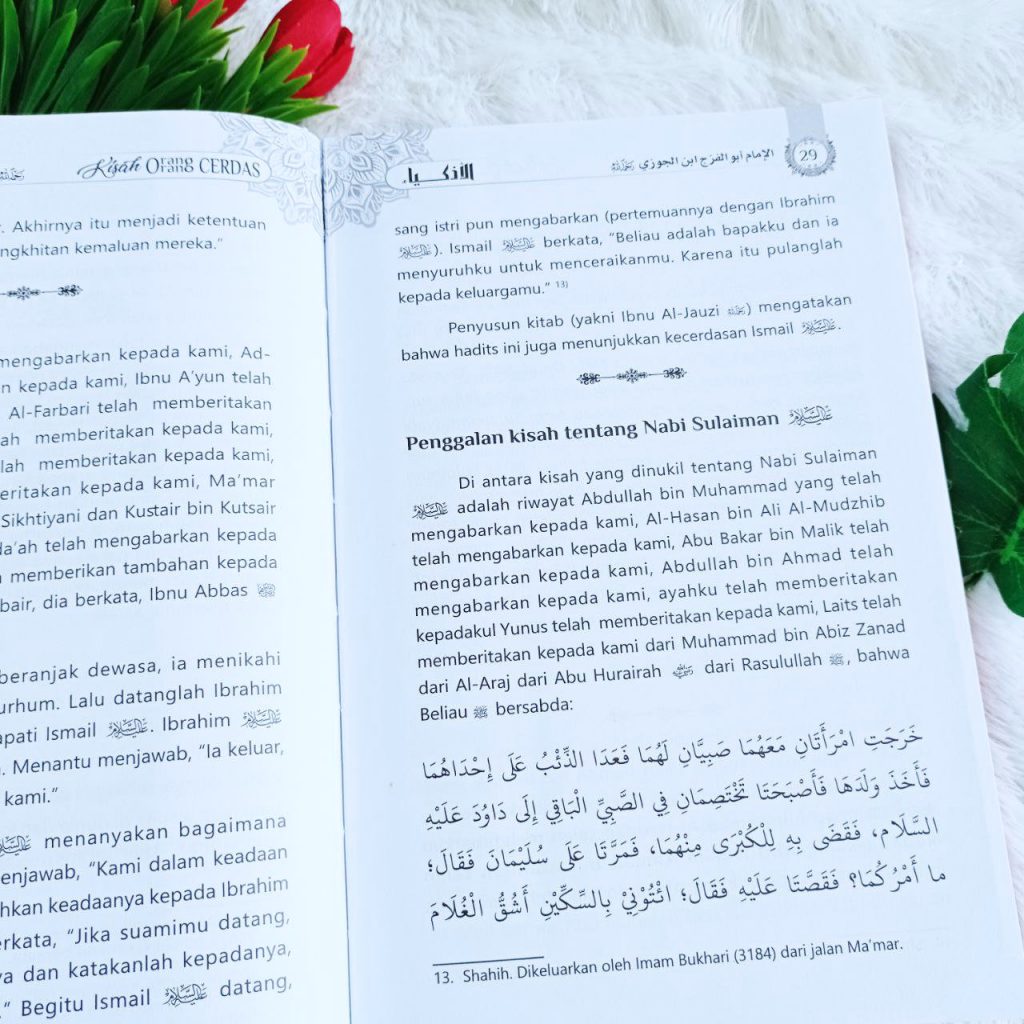 Kisah Orang CERDAS
Akhirnya itu menjadi ketentuan
kemaluan mereka.”
mengabarkan kepada kami, Ad-
kepada kami, Ibnu A’yun telah
Al-Farbari telah memberitakan
memberitakan kepada kami,
memberitakan kepada kami,
kepada kami, Ma’mar
Sikhtiyani dan Kustair bin Kutsair
telah mengabarkan kepada
memberikan tambahan kepada
dia berkata, Ibnu Abbas ﷺ
beranjak dewasa, ia menikahi
Lalu datanglah Ibrahim
Ismail عليه السلام. Ibrahim عليه السلام
Menantu menjawab, “Ia keluar,
kami.”
عليه السلام menanyakan bagaimana
“Kami dalam keadaan
keadaanya kepada Ibrahim
“Jika suamimu datang,
dan katakanlah kepadanya,
Begitu Ismail عليه السلام datang,
الأذكياء
الإمام أبو الفرج ابن الجوزي رحمه الله
29
sang istri pun mengabarkan (pertemuannya dengan Ibrahim
عليه السلام). Ismail عليه السلام berkata, “Beliau adalah bapakku dan ia
menyuruhku untuk menceraikanmu. Karena itu pulanglah
kepada keluargamu.” 13)
Penyusun kitab (yakni Ibnu Al-Jauzi رحمه الله) mengatakan
bahwa hadits ini juga menunjukkan kecerdasan Ismail عليه السلام.
Penggalan kisah tentang Nabi Sulaiman عليه السلام
Di antara kisah yang dinukil tentang Nabi Sulaiman
عليه السلام adalah riwayat Abdullah bin Muhammad yang telah
mengabarkan kepada kami, Al-Hasan bin Ali Al-Mudzhib
telah mengabarkan kepada kami, Abu Bakar bin Malik telah
mengabarkan kepada kami, Abdullah bin Ahmad telah
mengabarkan kepada kami, ayahku telah memberitakan
kepadakul Yunus telah memberitakan kepada kami, Laits telah
memberitakan kepada kami dari Muhammad bin Abiz Zanad
dari Al-Araj dari Abu Hurairah رضي الله عنه dari Rasulullah ﷺ, bahwa
Beliau ﷺ bersabda:
خَرَجَتِ امْرَأَتَانِ مَعَهُمَا صَبِيَّانِ لَهُمَا فَعَدَا الذِّئْبُ عَلَى إِحْدَاهُمَا
فَأَخَذَ وَلَدَهَا فَأَصْبَحَتَا تَخْتَصِمَانِ فِي الصَّبِيِّ الْبَاقِي إِلَى دَاوُدَ عَلَيْهِ
السَّلَام، فَقَضَى بِهِ لِلْكُبْرَى مِنْهُمَا، فَمَرَّتَا عَلَى سُلَيْمَانَ فَقَالَ؛
ما أَمْرُكُمَا؟ فَقَصَّتَا عَلَيْهِ فَقَالَ؛ ائْتُوْنِيْ بِالسِّكِّيْنِ أَشُقُّ الْغُلَامَ
13. Shahih. Dikeluarkan oleh Imam Bukhari (3184) dari jalan Ma’mar.